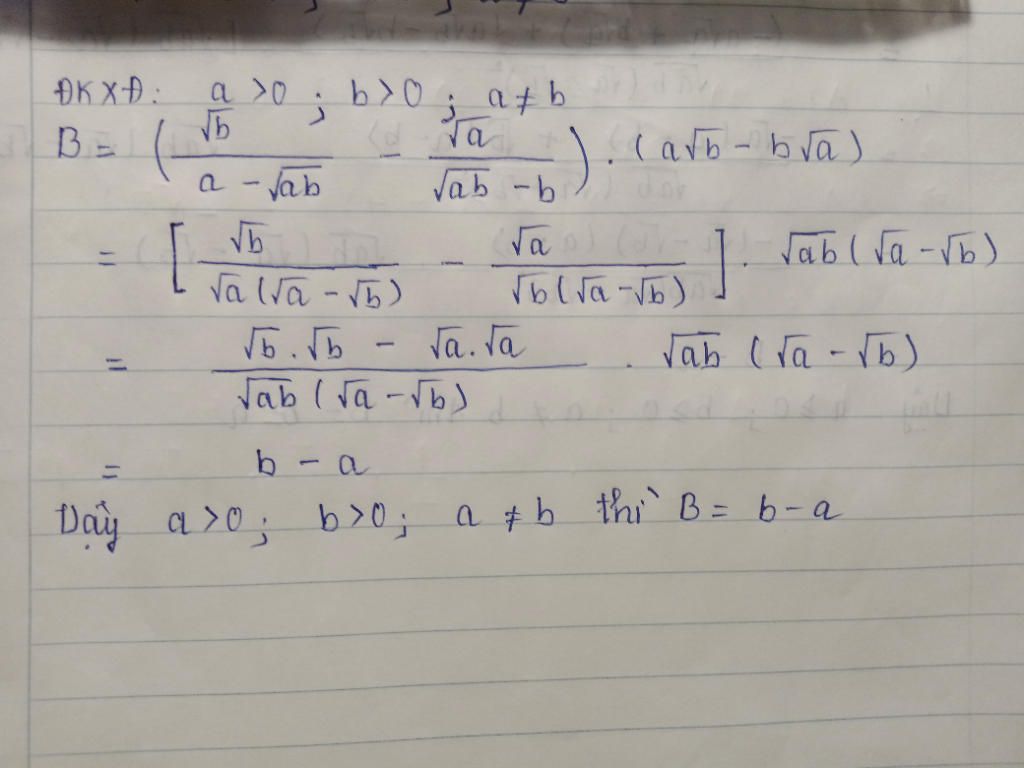 ĐKXĐ: a >0 ; b>0 ; a ≠ b
B = (√b / (a - √ab) - √a / (√ab - b)) . (a√b - b√a)
= [√b / (√a(√a - √b)) - √a / (√b(√a - √b))] . √ab (√a - √b)
= (√b . √b - √a . √a) / (√ab (√a - √b)) . √ab (√a - √b)
= b - a
Vậy a >0 ; b>0; a ≠ b thì B = b - a